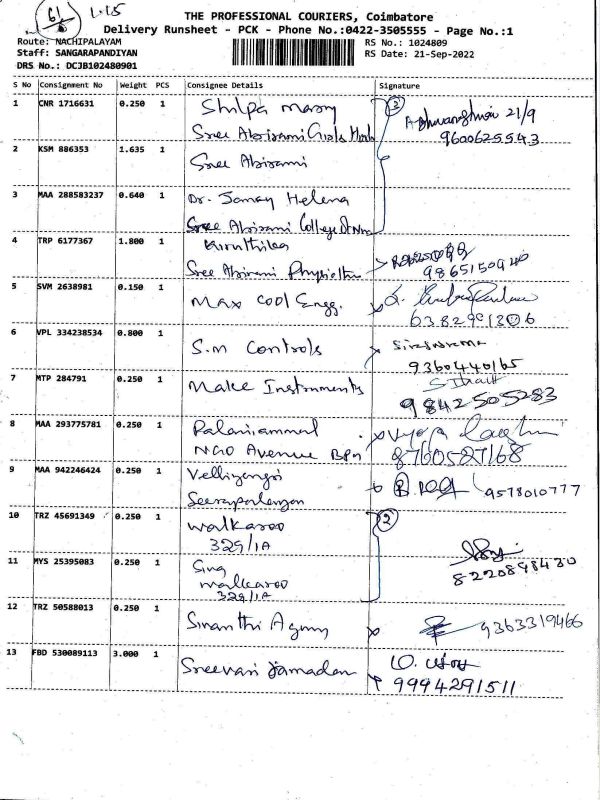 61 1.15
THE PROFESSIONAL COURIERS, Coimbatore
Delivery Runsheet - PCK - Phone No.:0422-3505555 - Page No.:1
Route: NACHIPALAYAM RS No.: 1024809
Staff: SANGARAPANDIYAN RS Date: 21-Sep-2022
DRS No.: DCJB102480901
S No Consignment No Weight PCS Consignee Details Signature
1 CNR 1716631 0.250 1 Shilpa 3 21/9
Sree Abirami 9600625543
2 KSM 886353 1.635 1 Sree Abirami
3 MAA 288583237 0.640 1 Dr. Helena
Sree Abirami College
4 TRP 6177367 1.800 1 Kiruthika
Sree Abirami
5 SVM 2638981 0.150 1 Max Cool Engg.
6382991306
6 VPL 334238534 0.800 1 S.m Controls
9360440165
7 MTP 284791 0.250 1 Make Instruments
9842505283
8 MAA 293775781 0.250 1 Palaniammal
Avenue 8760587168
9 MAA 942246424 0.250 1 Velliyangiri 9578010777
10 TRZ 45691349 0.250 1 walkaroo 2
329/1A
11 MYS 25395083 0.250 1
walkaroo 8220898430
329/1A
12 TRZ 50588013 0.250 1 9363319466
13 FBD 530089113 3.000 1 Sreevari
9994291511